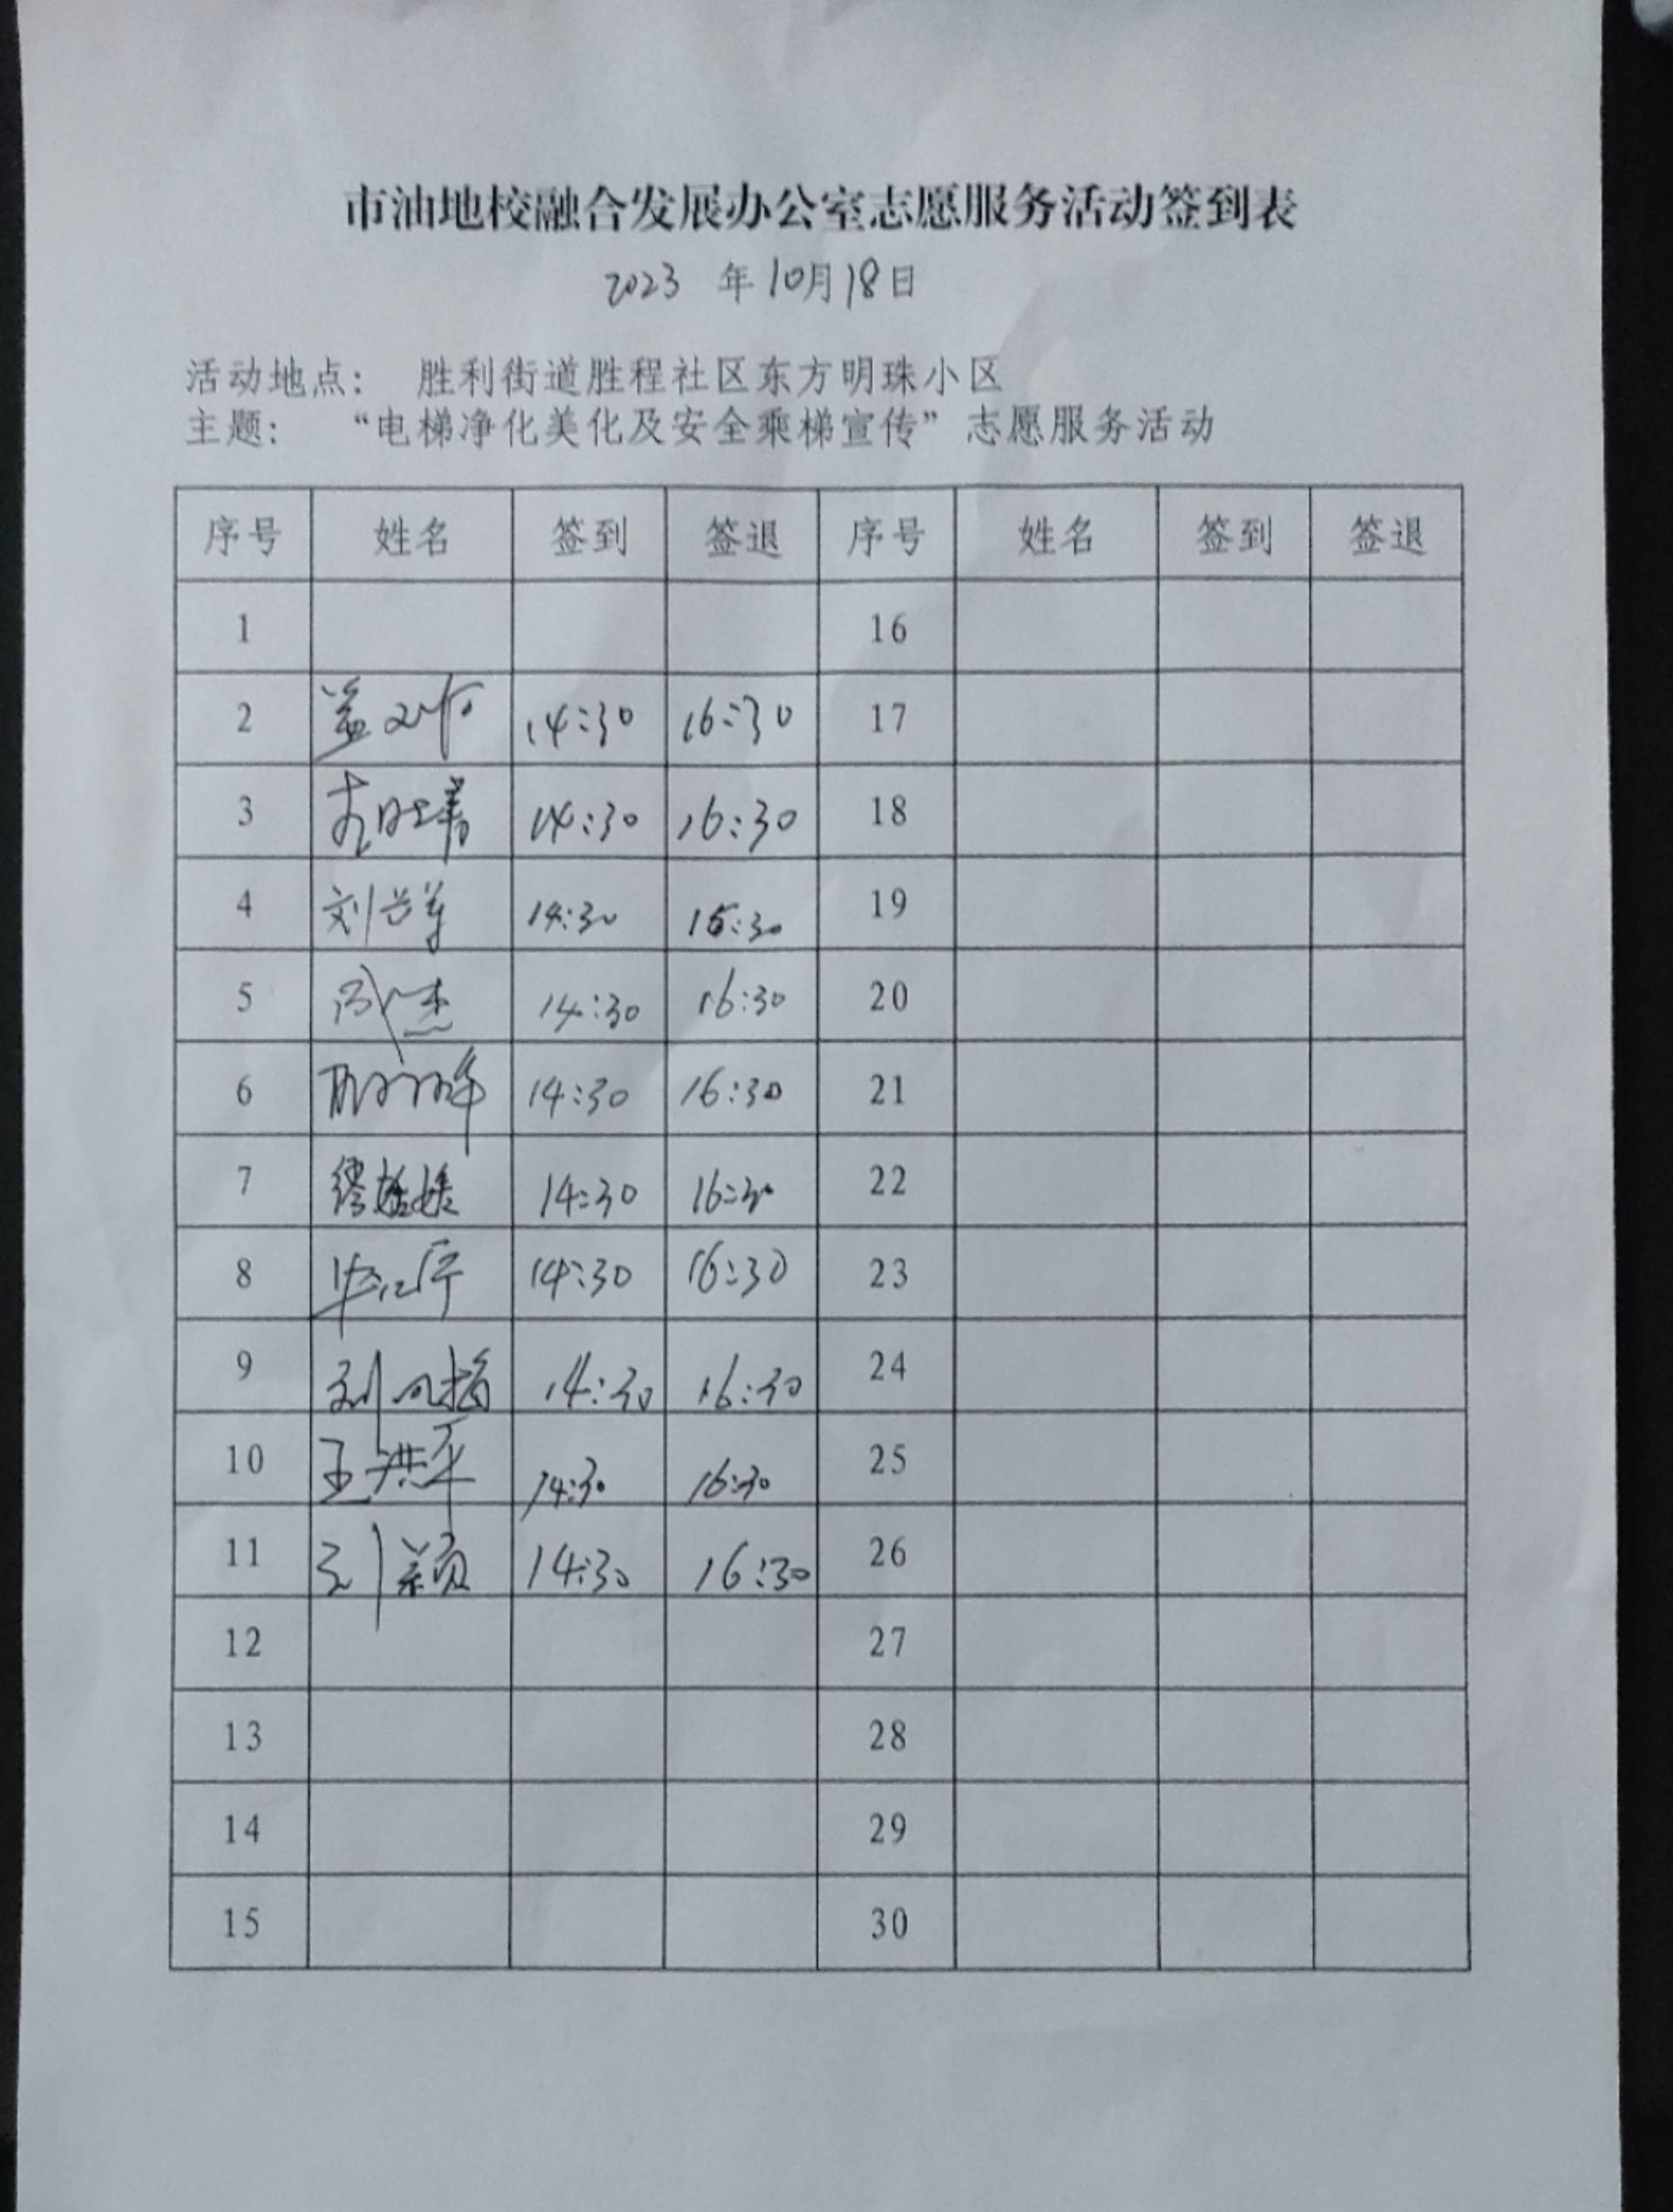 市油地校融合发展办公室志愿服务活动签到表
2023 年10月18日
活动地点： 胜利街道胜程社区东方明珠小区
主题： “电梯净化美化及安全乘梯宣传”志愿服务活动
序号 姓名 签到 签退 序号 姓名 签到 签退
1 16
2 14:30 16:30 17
3 14:30 16:30 18
4 刘 14:30 19
5 14:30 16:30 20
6 14:30 16:30 21
7 14:30 16:30 22
8 14:30 16:30 23
9 刘 14:30 16:30 24
10 王洪平 14:30 16:30 25
11 刘颖 14:30 16:30 26
12 27
13 28
14 29
15 30